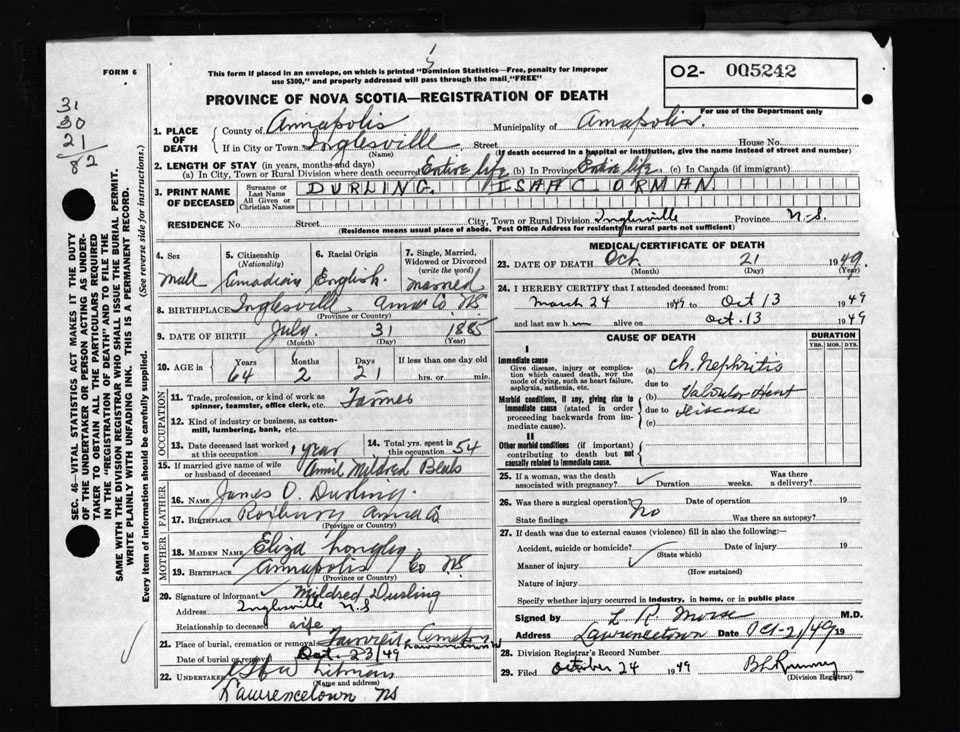 FORM 6
This form if placed in an envelope, on which is printed "Dominion Statistics—Free, penalty for improper
use $300," and properly addressed will pass through the mail "FREE"
O2- 005242
For use of the Department only
PROVINCE OF NOVA SCOTIA—REGISTRATION OF DEATH
31
21
82
SEC. 46—VITAL STATISTICS ACT MAKES IT THE DUTY
OF THE UNDERTAKER OR PERSON ACTING AS UNDER-
TAKER TO OBTAIN ALL THE PARTICULARS REQUIRED
IN THE "REGISTRATION OF DEATH" AND TO FILE THE
SAME WITH THE DIVISION REGISTRAR WHO SHALL ISSUE THE BURIAL PERMIT.
WRITE PLAINLY WITH UNFADING INK. THIS IS A PERMANENT RECORD.
Every item of information should be carefully supplied. (See reverse side for instructions.)
1. PLACE OF DEATH
County of Annapolis Municipality of Annapolis.
If in City or Town Inglesville Street House No.
(Name) (If death occurred in a hospital or institution, give the name instead of street and number)
2. LENGTH OF STAY (in years, months and days)
(a) In City, Town or Rural Division where death occurred Entire life (b) In Province Entire life (c) In Canada (if immigrant)
3. PRINT NAME OF DECEASED
Surname or Last Name DURLING, ISAAC ORMAN.
All Given or Christian Names
RESIDENCE No. Street City, Town or Rural Division Inglesville Province N.S.
(Residence means usual place of abode. Post Office Address for residents in rural parts not sufficient)
4. Sex Male
5. Citizenship (Nationality) Canadian
6. Racial Origin English
7. Single, Married, Widowed or Divorced (write the word) married
8. BIRTHPLACE Inglesville Anna Co. NS
(Province or Country)
9. DATE OF BIRTH July 31 1885
(Month) (Day) (Year)
10. AGE Years 64 Months 2 Days 21 If less than one day old hrs. or min.
OCCUPATION
11. Trade, profession, or kind of work as spinner, teamster, office clerk, etc. Farmer
12. Kind of industry or business, as cotton-mill, lumbering, bank, etc.
13. Date deceased last worked at this occupation 1 year
14. Total yrs. spent in this occupation 54
15. If married give name of wife or husband of deceased Annie Mildred Beals
FATHER
16. NAME James O. Durling.
17. BIRTHPLACE Roxbury Anna Co
(Province or Country)
MOTHER
18. MAIDEN NAME Eliza Longley
19. BIRTHPLACE Annapolis Co NS
(Province or Country)
20. Signature of informant Mildred Durling
Address Inglesville N.S
Relationship to deceased wife
21. Place of burial, cremation or removal
Date of burial or removal Oct. 23/49
22. UNDERTAKER
(Name and address)
Lawrencetown NS
MEDICAL CERTIFICATE OF DEATH
23. DATE OF DEATH Oct. 21 1949.
(Month) (Day) (Year)
24. I HEREBY CERTIFY that I attended deceased from:
March 24 1949 to Oct 13 1949
and last saw him alive on Oct. 13 1949
CAUSE OF DEATH
DURATION
YRS. MOS. DYS.
I
Immediate cause
Give disease, injury or complication which caused death, not the mode of dying, such as heart failure, asphyxia, asthenia, etc.
(a) Ch. Nephritis
due to
Morbid conditions, if any, giving rise to immediate cause (stated in order proceeding backwards from immediate cause).
(b) Valvular Heart
due to Disease
(c)
II
Other morbid conditions (if important) contributing to death but not causally related to immediate cause.
25. If a woman, was the death associated with pregnancy? Duration weeks. Was there a delivery?
26. Was there a surgical operation? No Date of operation 19
State findings Was there an autopsy?
27. If death was due to external causes (violence) fill in also the following:
Accident, suicide or homicide? Date of injury 19
(State which)
Manner of injury
(How sustained)
Nature of injury
Specify whether injury occurred in industry, in home, or in public place
Signed by L. R. Morse M.D.
Address Lawrencetown Date Oct-21/49 19
28. Division Registrar's Record Number
29. Filed October 24 1949
(Division Registrar)